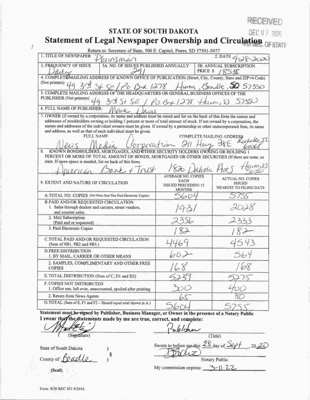 RECEIVED
DEC 07 2020
SEC. OF STATE
STATE OF SOUTH DAKOTA
Statement of Legal Newspaper Ownership and Circulation
Return to: Secretary of State, 500 E. Capitol, Pierre, SD 57501-5077
1. TITLE OF NEWSPAPER Plainsman
2. DATE 9-28-2020
3. FREQUENCY OF ISSUE Daily
3A. NO. OF ISSUES PUBLISHED ANNUALLY 241
3B. ANNUAL SUBSCRIPTION PRICE $
4. COMPLETE MAILING ADDRESS OF KNOWN OFFICE OF PUBLICATION (Street, City, County, State and ZIP+4 Code)
(Not printers) 49 3rd St SE / PO Box 1278 Huron, Beadle SD 57350
5. COMPLETE MAILING ADDRESS OF THE HEADQUARTERS OR GENERAL BUSINESS OFFICES OF THE
PUBLISHER (Not printer) 49 3rd St SE / PO Box 1278 Huron, SD 57350
6. FULL NAME OF PUBLISHER Mark Davis
7. OWNER (If owned by a corporation, its name and address must be stated and list on the back of this form the names and
addresses of stockholders owning or holding 1 percent or more of total amount of stock. If not owned by a corporation, the
names and addresses of the individual owners must be given. If owned by a partnership or other unincorporated firm, its name
and address, as well as that of each individual must be given.
FULL NAME COMPLETE MAILING ADDRESS
News Media Corporation 211 Hwy 38E Rochelle, IL
8. KNOWN BONDHOLDERS, MORTGAGES, AND OTHER SECURITY HOLDERS OWNING OR HOLDING 1
PERCENT OR MORE OF TOTAL AMOUNT OF BONDS, MORTGAGES OR OTHER SECURITIES (If there are none, so
state. If more space is needed, list on back of this form.
American Bank & Trust Dakota Ave S Huron, SD
9. EXTENT AND NATURE OF CIRCULATION
AVERAGE NO. COPIES EACH ISSUED PRECEDING 12 MONTHS
ACTUAL NO. COPIES ISSUED NEAREST TO FILING DATE
A. TOTAL NO. COPIES 5604 5755
B. PAID AND/OR REQUESTED CIRCULATION
1. Sales through dealers and carriers, street vendors, and counter sales. 1931 2028
2. Mail Subscription (Paid and or requested) 2356 2333
3. Paid Electronic Copies 182 182
C. TOTAL PAID AND/OR REQUESTED CIRCULATION (Sum of 9B1, 9B2 and 9B3) 4469 4543
D. FREE DISTRIBUTION
1. BY MAIL, CARRIER OR OTHER MEANS 602 564
2. SAMPLES, COMPLIMENTARY AND OTHER FREE COPIES 168 168
E. TOTAL DISTRIBUTION (Sum of C, D1 and D2) 5239 5275
F. COPIES NOT DISTRIBUTED
1. Office use, left over, unaccounted, spoiled after printing 300 400
2. Return from News Agents 65 80
G. TOTAL (Sum of E, F1 and F2 – Should equal total shown in A.) 5604 5755
Statement must be signed by Publisher, Business Manager, or Owner in the presence of a Notary Public
I swear that the statements made by me are true, correct, and complete:
Publisher
(Signature) (Title)
State of South Dakota
Sworn to before me this 28 day of Sept, 2020
County of Beadle
Notary Public
(Seal)
My commission expires: 3-11-22